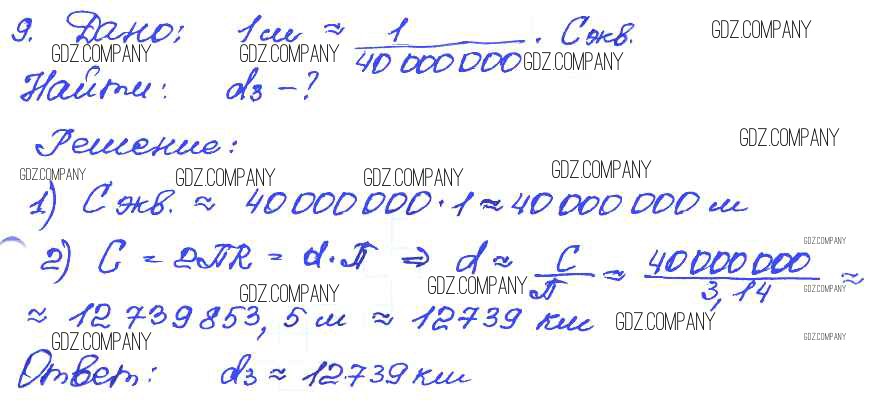 9. Дано: 1 м ≈ 1/40 000 000 · C экв.
GDZ.COMPANY GDZ.COMPANY GDZ.COMPANY GDZ.COMPANY
Найти: dз – ?
Решение:
GDZ.COMPANY
GDZ.COMPANY GDZ.COMPANY GDZ.COMPANY GDZ.COMPANY
1) C экв. ≈ 40 000 000 · 1 ≈ 40 000 000 м
GDZ.COMPANY
2) C = 2ПR = d · П ⇒ d ≈ C/П ≈ 40 000 000/3,14 ≈
GDZ.COMPANY GDZ.COMPANY GDZ.COMPANY
≈ 12 739 853, 5 м ≈ 12739 км GDZ.COMPANY
GDZ.COMPANY GDZ.COMPANY
Ответ: dз ≈ 12739 км